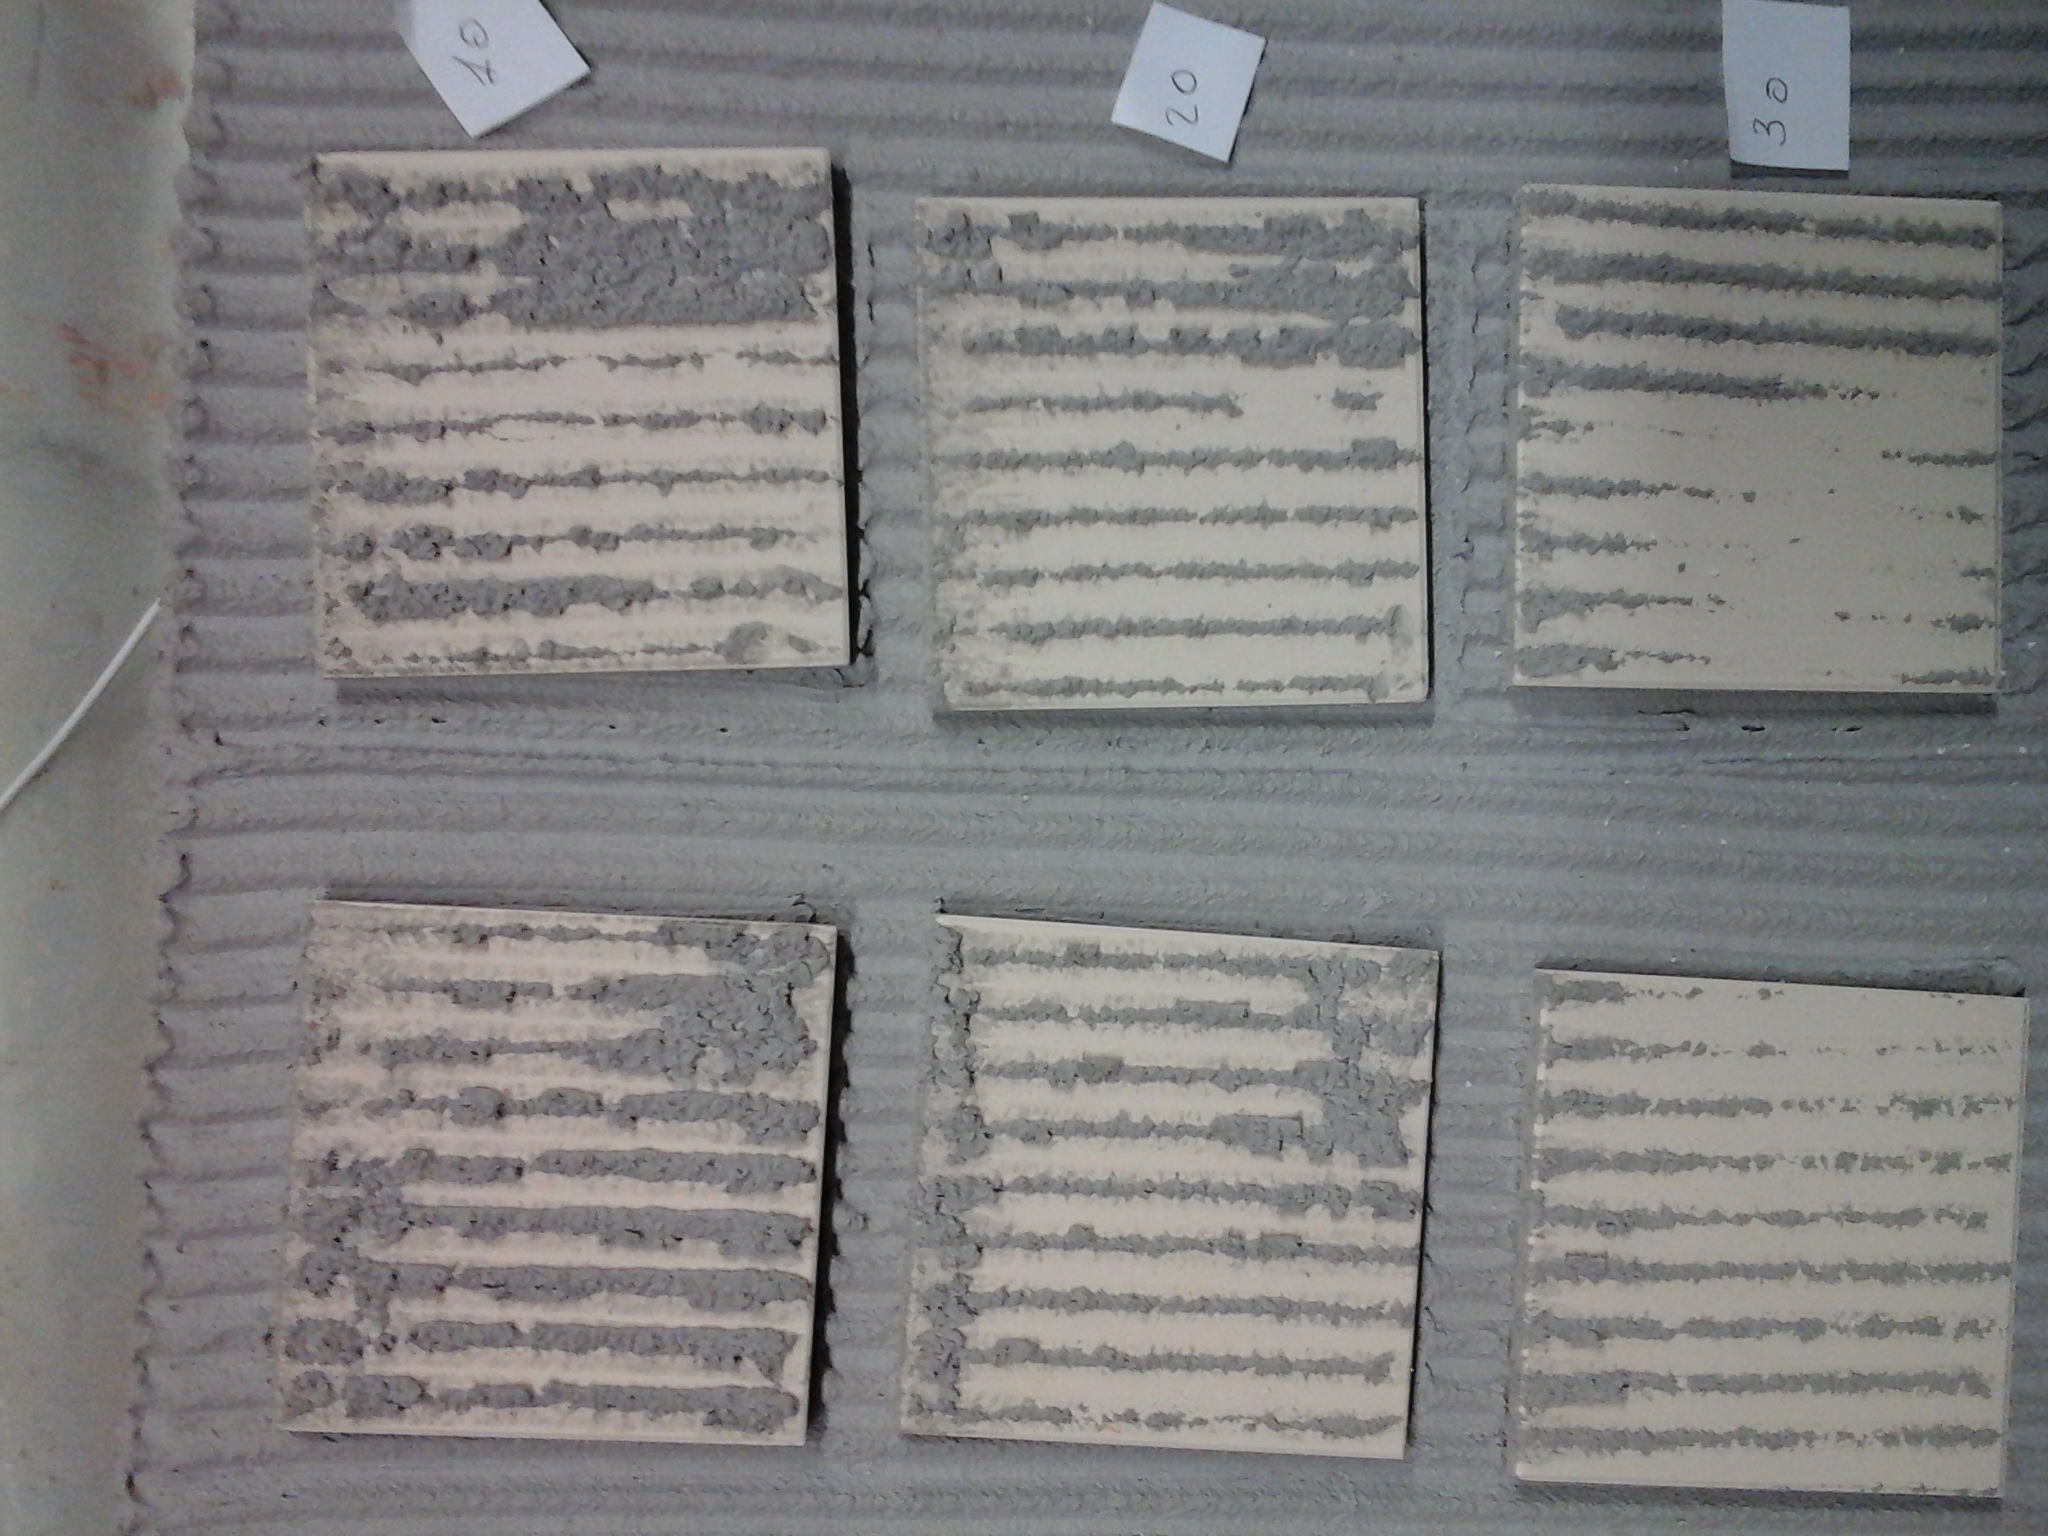 30
20
10